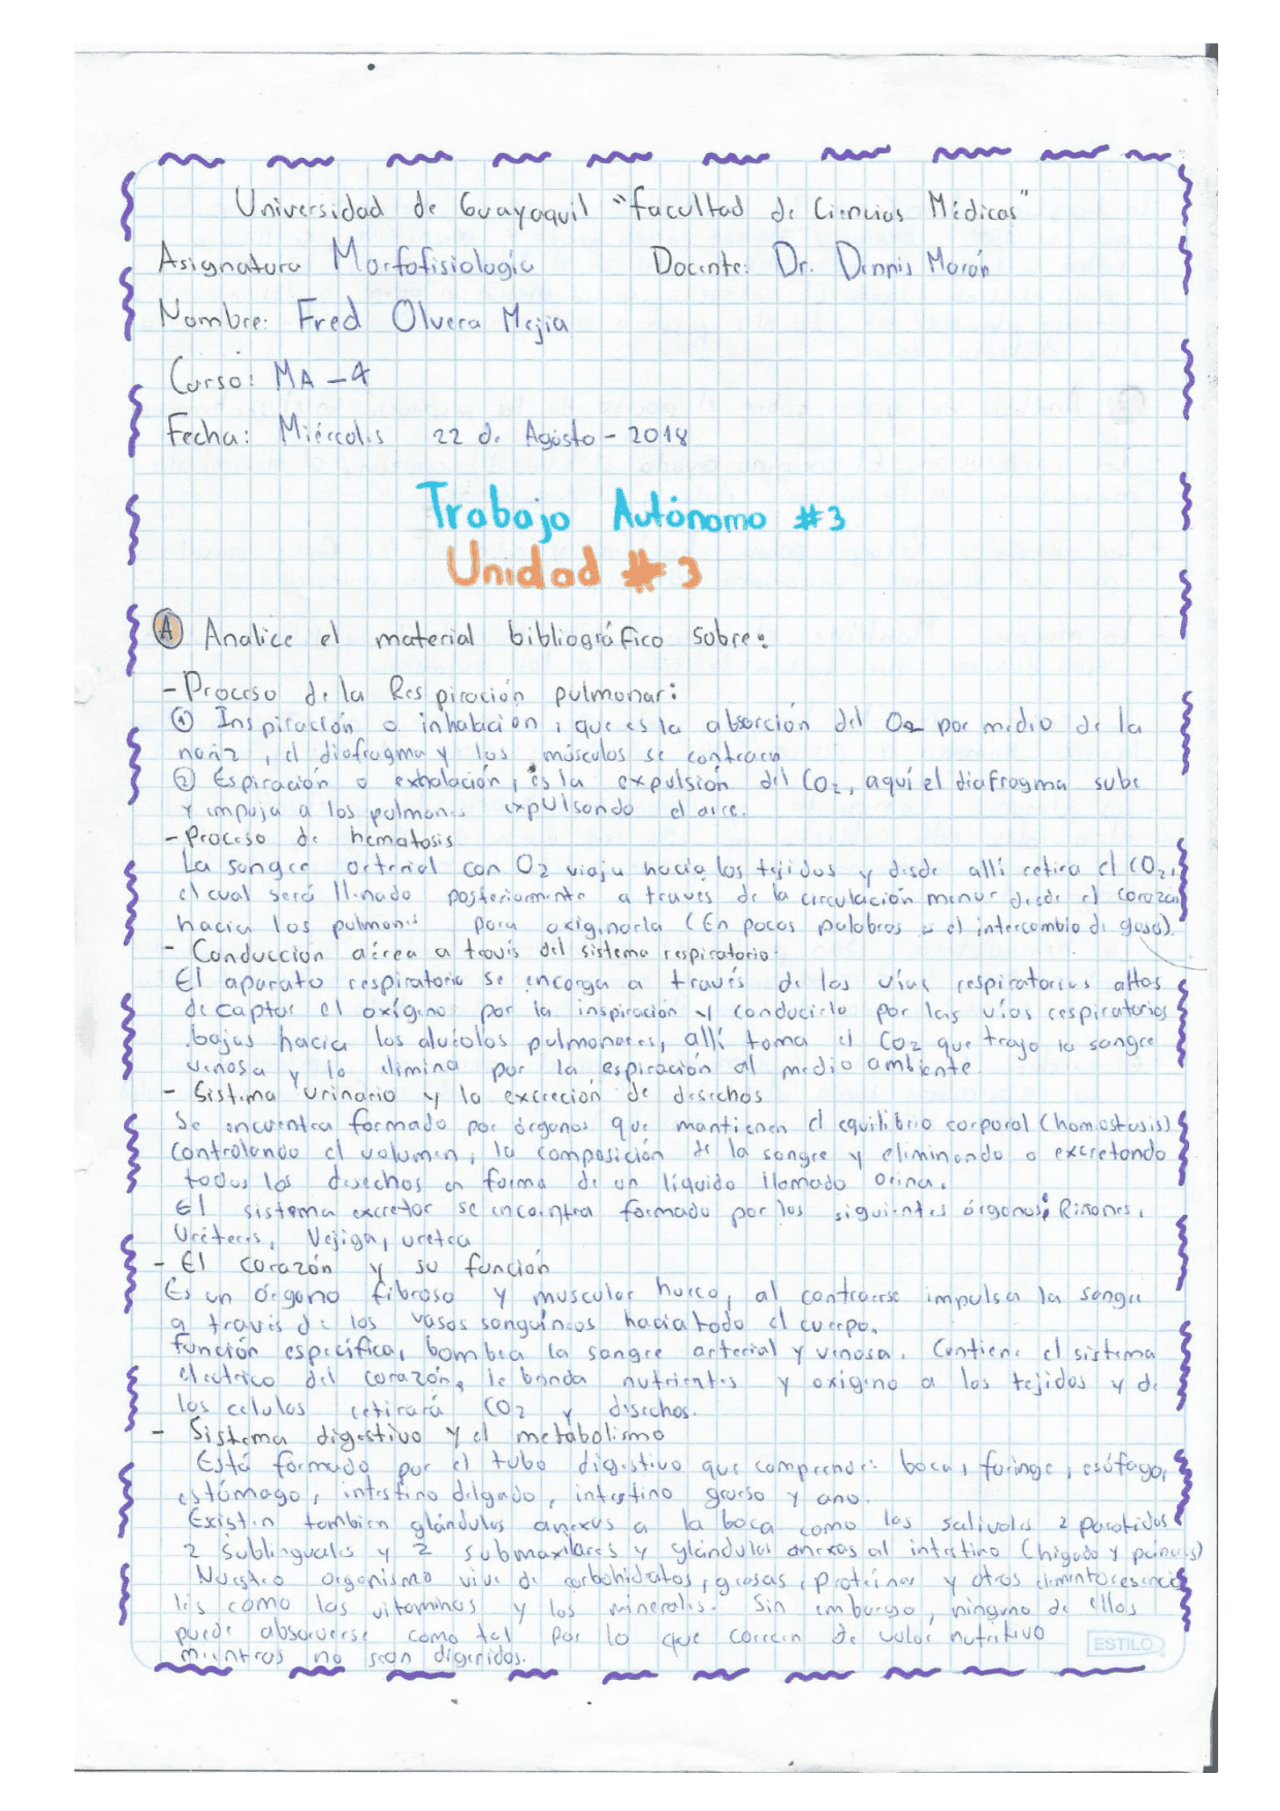 Universidad de Guayaquil "facultad de Ciencias Médicas"
Asignatura Morfofisiología Docente: Dr. Dennis Morán
Nombre: Fred Olvera Mejia
Curso: MA - 4
Fecha: Miércoles 22 de Agosto - 2018
Trabajo Autónomo #3
Unidad #3
A Analice el material bibliográfico sobre:
- Proceso de la Respiración pulmonar:
① Inspiración o inhalación, que es la absorción del O2 por medio de la
nariz, el diafragma y los músculos se contraen
② Espiración o exhalación, es la expulsión del CO2, aquí el diafragma sube
y empuja a los pulmones expulsando el aire.
- Proceso de hematosis
La sangre arterial con O2 viaja hacia los tejidos y desde allí retira el CO2,
el cual será llenado posteriormente a traves de la circulación menor desde el corazon
hacia los pulmones para oxigenarla (En pocas palabras es el intercambio de gases).
- Conducción aérea a través del sistema respiratorio.
El aparato respiratorio se encarga a través de las vías respiratorias altas
de captar el oxígeno por la inspiración y conducirlo por las vías respiratorias
bajas hacia los alveolos pulmonares, allí toma el CO2 que trajo la sangre
venosa y lo elimina por la espiración al medio ambiente
- Sistema urinario y la excreción de desechos
Se encuentra formado por órganos que mantienen el equilibrio corporal (homeostasis)
controlando el volumen, la composición de la sangre y eliminando o excretando
todos los desechos en forma de un líquido llamado orina.
El sistema excretor se encuentra formado por los siguientes órganos: Riñones,
Uréteres, Vejiga, uretra
- El corazón y su función
Es un órgano fibroso y muscular hueco, al contraerse impulsa la sangre
a través de los vasos sanguíneos hacia todo el cuerpo.
función específica, bombea la sangre arterial y venosa. Contiene el sistema
electrico del corazón, le brinda nutrientes y oxigeno a los tejidos y de
las celulas retirará CO2 y desechos.
- Sistema digestivo y el metabolismo
Está formado por el tubo digestivo que comprende: boca, faringe, esófago,
estómago, intestino delgado, intestino grueso y ano.
Existen tambien glándulas anexas a la boca como las salivales 2 parotidas
2 sublinguales y 2 submaxilares y glándulas anexas al intestino (higado y páncreas)
Nuestro organismo vive de carbohidratos, grasas, proteinas y otros
como las vitaminas y los minerales. Sin embargo, ninguno de ellos
puede absorverse como tal por lo que carecen de valor nutritivo
mientras no sean digeridos.
ESTILO